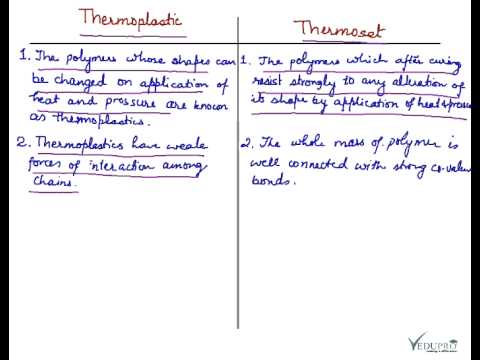 Thermoplastic
1. The polymers whose shapes can
be changed on application of
heat and pressure are known
as thermoplastics.
2. Thermoplastics have weak
forces of interaction among
chains.
Thermoset
1. The polymers which after curing
resist strongly to any alteration of
its shape by application of heat & pressure
2. The whole mass of polymer is
well connected with strong co-valen
bonds.
VEDUPRO